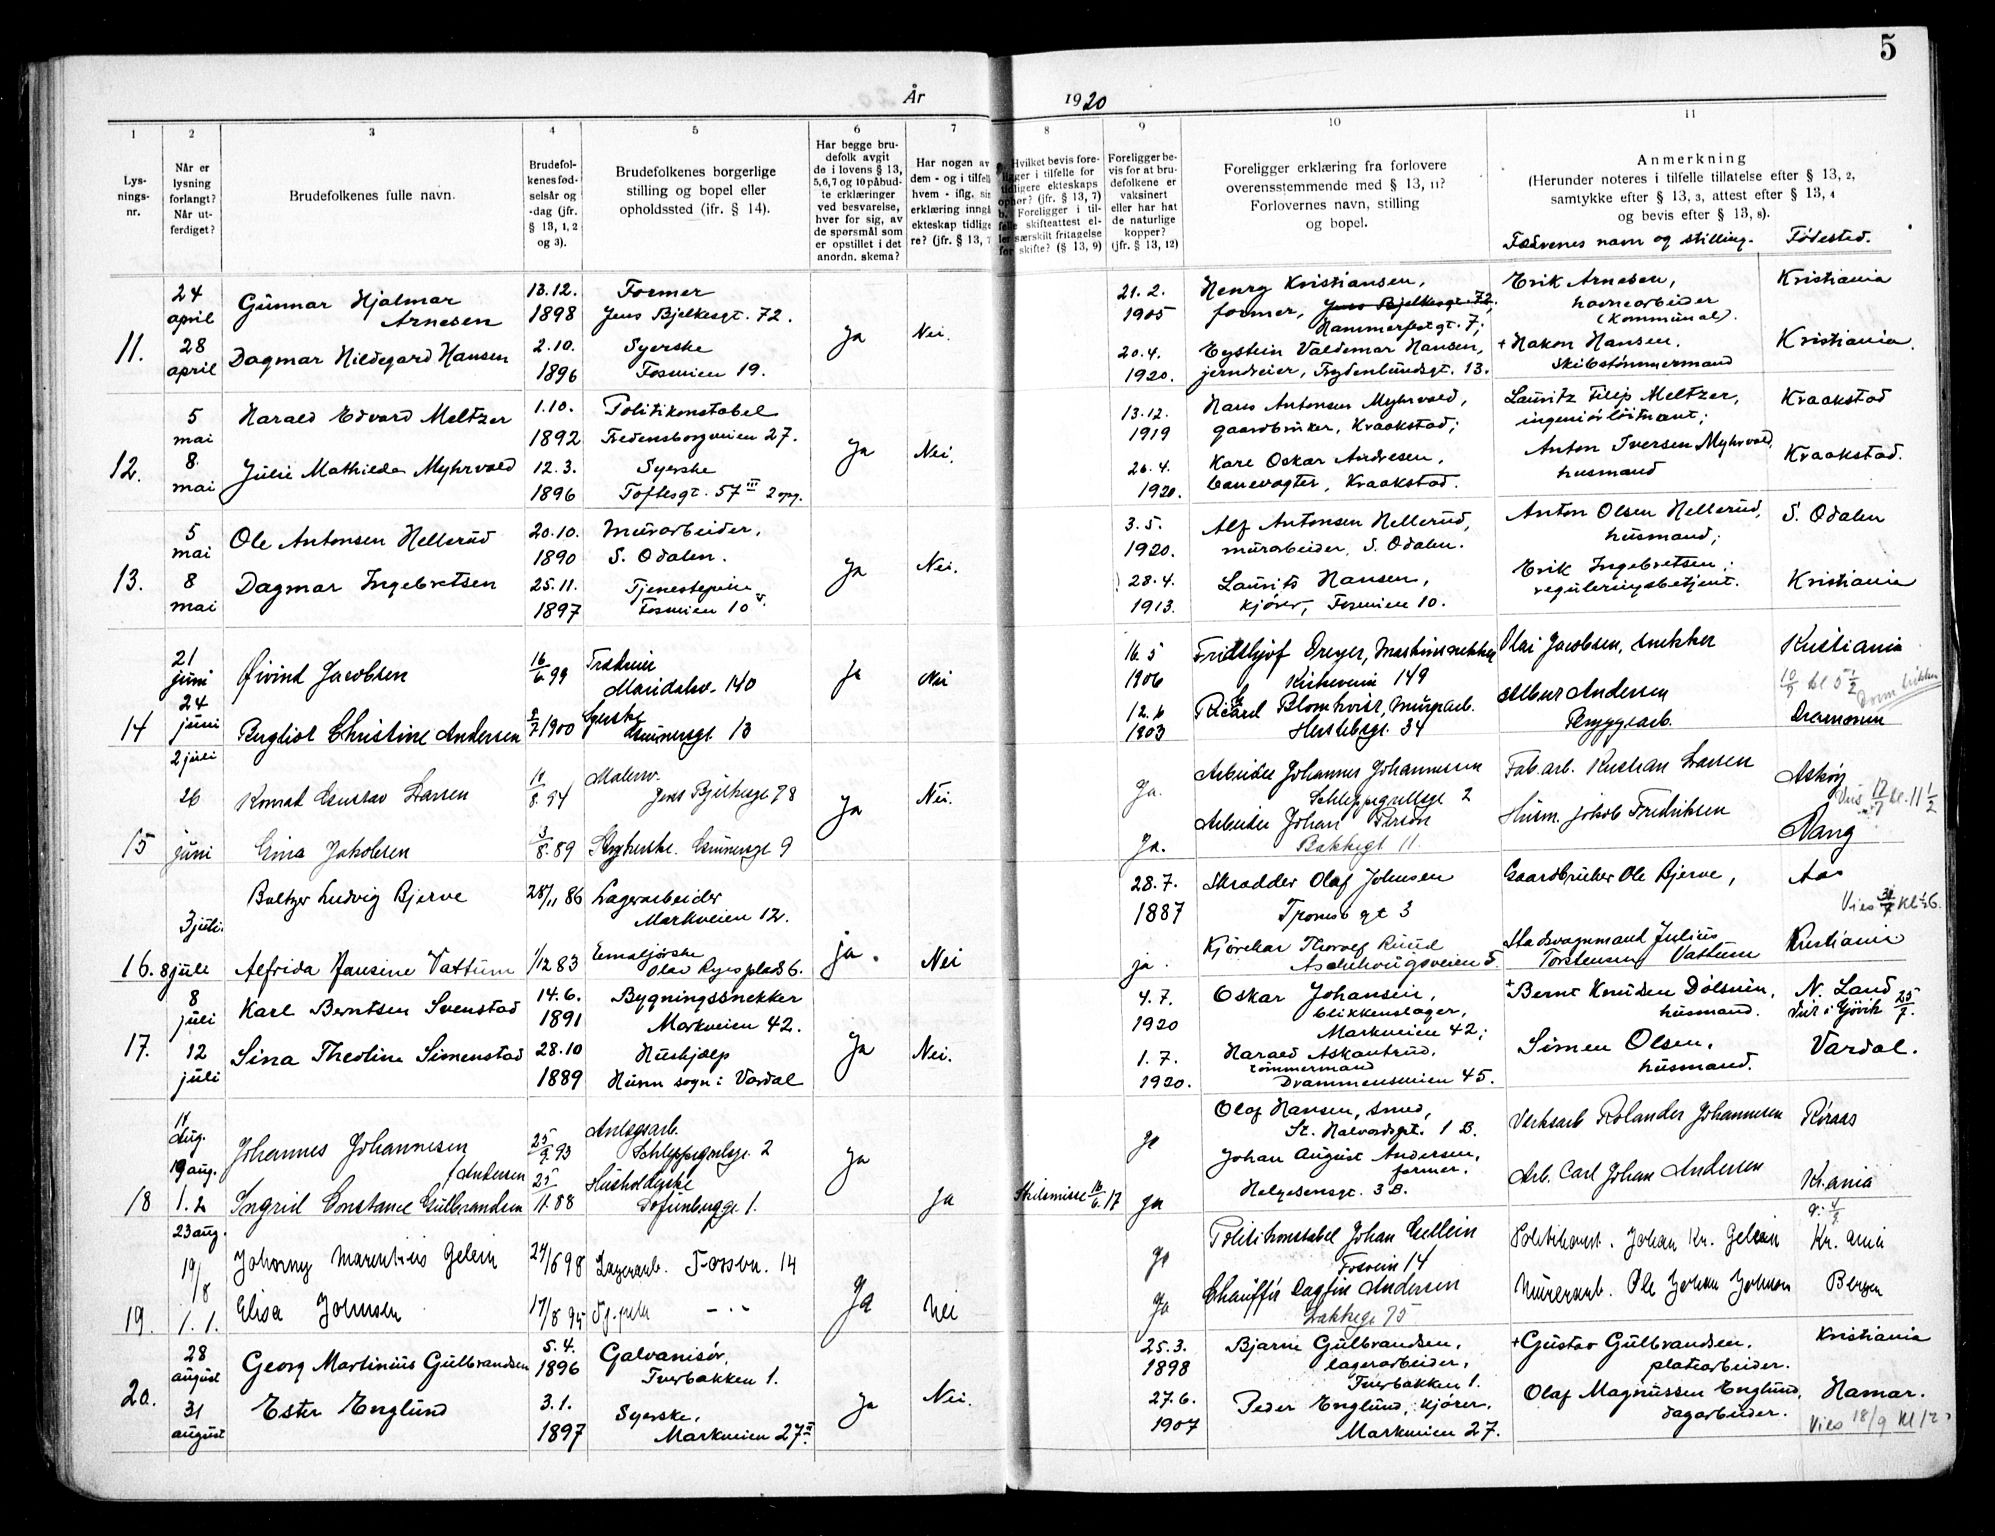 5
År 1920
1 2 3 4 5 6 7 8 9 10 11
Lys-
nings-
nr.
Når er
lysning
forlangt?
Når ut-
ferdiget?
Brudefolkenes fulle navn.
Brudefol-
kenes fød-
selsår og
-dag (jfr.
§ 13, 1, 2
og 3).
Brudefolkenes borgerlige
stilling og bopel eller
opholdssted (ifr. § 14).
Har begge bru-
defolk avgit
de i lovens § 13,
5,6,7 og 10 påbud-
te erklæringer
ved besvarelse,
hver for sig, av
de spørsmål som
er opstillet i det
anordn. skema?
Har nogen av
dem - og i tilfelle
hvem - iflg. sin
erklæring inngå
ekteskap tidlige
re? (jfr. § 13, 7
Hvilket bevis fore-
ligger i tilfelle for
tidligere ekteskaps
ophør? (jfr. § 13, 7)
b. Foreligger i til-
felle skifteattest el-
ler særskilt fritagelse
for skifte? (§ 13, 9)
Foreligger be-
vis for at bru-
defolkene er
vaksinert
eller har hat
de naturlige
kopper?
(jfr. § 13, 12)
Foreligger erklæring fra forlovere
overensstemmende med § 13, 11?
Forlovernes navn, stilling
og bopel.
Anmerkning
(Herunder noteres i tilfelle tillatelse efter § 13, 2,
samtykke efter § 13, 3, attest efter § 13, 4
og bevis efter § 13, 8).
Fædrenes navn og stilling. Fødested.
11.
24
april
28
april
Gunnar Hjalmar
Arnesen
Dagmar Hildegard Hansen
13.12.
1898
2.10.
1896
Former
Jens Bjelkesgt. 72.
Syerske
Fossveien 19.
Ja
Nei.
21.2.
1905
20.4.
1920.
Henry Kristiansen,
former, Jens Bjelkesgt. 72,
Hammerfestgt. 7;
Eystein Valdemar Hansen,
jerndreier, Frydenlundsgt. 13.
Erik Arnesen,
havnearbeider
(kommunal).
+ Hakon Hansen,
skibstømmermand
Kristiania
Kristiania.
12.
5
mai
8.
mai
Harald Edvard Meltzer
Julie Mathilde Myhrvold
1.10.
1892
12.3.
1896
Politikonstabel
Fredensborgveien 27.
Syerske
Toftesgt. 57 III 2 opg.
Ja
Nei.
13.12.
1919
26.4.
1920.
Hans Antonsen Myhrvold,
gaardbruker, Kraakstad;
Kare Oskar Andresen,
banevogter, Kraakstad.
Lauritz Filip Meltzer,
ingeniørløitnant;
Anton Iversen Myhrvold,
husmand
Kraakstad
Kraakstad.
13.
5
mai
8
mai
Ole Antonsen Hellerud
Dagmar Ingebretsen
20.10.
1890
25.11.
1897
Murarbeider,
S. Odalen.
Tjenestepike
Fosveien 10 V.
Ja
Nei.
3.5.
1920.
28.4.
1913.
Alf Antonsen Hellerud,
murarbeider, S. Odalen.
Laurits Hansen,
kjører, Fosveien 10.
Anton Olsen Hellerud,
husmand;
Erik Ingebretsen,
reguleringsbetjent.
S. Odalen
Kristiania
14
21
juni
24
juni
Øivind Jacobsen
Bergliot Christine Andersen
16/6 99
2/7 1900
Maridalsv. 140
Syerske
Grünersgt 13
Ja
Nei
16.5
1906
12.6
1903
Fridthjof Dreyer, Maskinsnekker
Kirkeveien 149
Ricard Blomkvist, Murarb.
Herslebsgt. 34
Olai Jacobsen, snekker
Albert Andersen
Bryggearb.
Kristiania
10/7 kl 5 1/2
Domkirken
Drammen
15
2 juli
26
juni
Konrad Gustav Larsen
Gina Jakobsen
10/8. 94
3/8. 89
Malersv.
Jens Bjelkesgt 78
Strykerske. Grünersgt 9
Ja
Nei.
Ja.
Ja.
Arbeider Johannes Johannesen
Schleppegrellsgt 2
Arbeider Johan Person
Bakkegt 11.
Fab.arb. Kristian Larsen
Husm. Jakob Fredriksen
Askøy
Vies 17/7 kl. 11 1/2
Vang
16.
3 juli.
8 juli
Baltzer Ludvig Bjerve
Alfrida Pausine Vattum
28/11 86
1/12 83
Lagerarbeider
Markveien 12.
Emaljørske
Olav Ryes plads 6.
ja.
Nei
28.7.
1887
ja.
Skrædder Olaf Johnsen
Tromsøgt 3
Kjørekar Thorolf Ruud
Aschehougsveien 5
Gaardbruker Ole Bjerve,
Stadsvognmand Julius
Torstensen Vattum
Aas
Vies 31/7 Kl 1/2 6.
Kristiania
17.
8
juli
12
juli
Karl Berntsen Svenstad
Sina Theoline Simenstad
14.6.
1891
28.10
1889
Bygningssnekker
Markveien 42.
Hushjælp
Hunn sogn i Vardal
Ja
Nei.
4.7.
1920
1.7.
1920.
Oskar Johansen,
blikkenslager,
Markveien 42;
Harald Askantrud,
tømmermand
Drammensveien 45.
+ Bernt Knudsen Dølsvein,
husmand.
Simen Olsen,
husmand.
N. Land
Viet i Gjøvik 25/7.
Vardal.
18
18
Aug.
19 aug.
1.2
Johannes Johannesen
f Andersen
Ingrid Constance Gulbrandsen
25/9. 93
25/11.88
Anlægsarb.
Schleppegrelsgt. 2
Husholderske
Sofienberggt. 1.
Ja
Ja
Skilsmisse 16/6. 17
Ja
Ja
Olaf Hansen, smed,
St. Halvardsgt. 1 B.
Johan August Andersen,
former.
Helgesensgt. 3 B.
Verksarb Rolander Johannesen
Arb. Carl Johan Andersen
Røraas
Kr.ania
19.
23 aug.
19/8
1.1.
Johanny Marentius Gelein
Elisa Johnsen
24/6 98
17/8 95
Lagerarb. Fossvn. 14
Ja
Nei
Ja
Ja
Politikonstabel Johan Gellein
Fosvein 14
Chauffør Dagfin Andersen
Lakkegt 75
Politikonst. Johan Kr. Gelein
Murerarb. Ole Johan Johnson
Kr.ania
Bergen
20.
28
august
31
august
Georg Martinius Gulbrandsen
Ester Englund
5.4.
1896
3.1.
1897
Galvanisør,
Tverbakken 1.
Syerske,
Markveien 27 II.
Ja
Nei.
25.3.
1898
27.6.
1907
Bjarne Gulbrandsen,
lagerarbeider,
Tverbakken 1.
Peder Englund, kjører,
Markveien 27.
+ Gustav Gulbrandsen,
platearbeider.
Olaf Magnussen Englund,
dagarbeider.
Kristiania
Hamar.
Vies 18/9 Kl 12